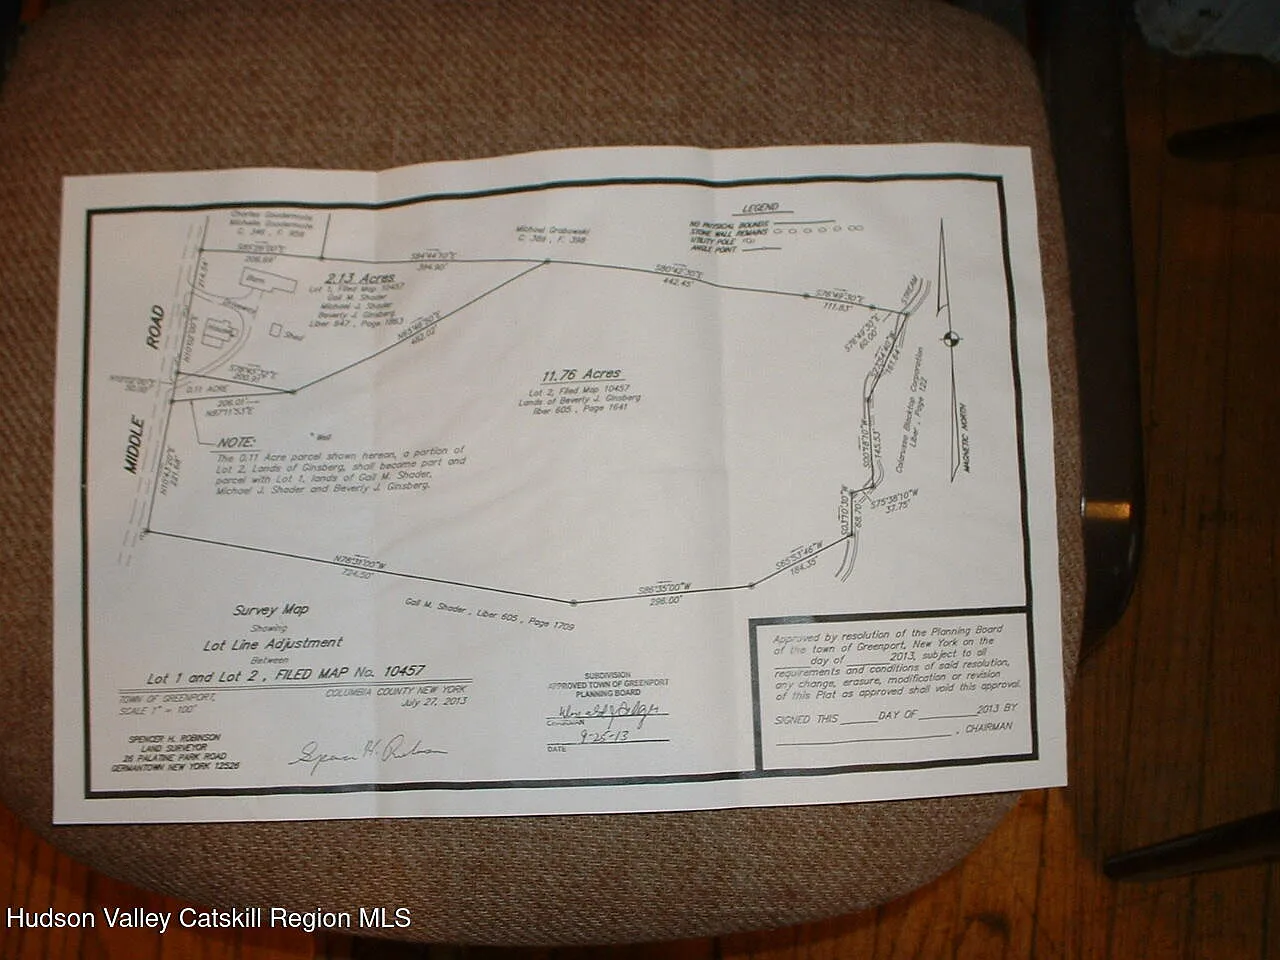 Charles Goudermote
Michelle Goudermote
C. 346, F. 959
Michael Grabowski
C. 369, F. 398
LEGEND
NO PHYSICAL BOUNDS
STONE WALL REMAINS
UTILITY POLE
ANGLE POINT
206.69'
S84°44'10"E
394.90'
S80°42'30"E
442.45'
S76°49'30"E
111.83'
S76°49'30"E
60.00'
STREAM
214.54'
Barn
Driveway
Shed
2.13 Acres
Lot 1, Filed Map 10457
Gail M. Shader
Michael J. Shader
Beverly J. Ginsberg
Liber 647, Page 1863
482.02'
161.64'
MIDDLE ROAD
50.00'
200.91'
0.11 ACRE
206.01'
N87°11'53"E
11.76 Acres
Lot 2, Filed Map 10457
Lands of Beverly J. Ginsberg
liber 605, Page 1641
Colarusso Blacktop Corporation
Liber, Page 122
MAGNETIC NORTH
Well
NOTE:
The 0.11 Acre parcel shown hereon, a portion of
Lot 2, Lands of Ginsberg, shall become part and
parcel with Lot 1, lands of Gail M. Shader,
Michael J. Shader and Beverly J. Ginsberg.
221.68'
145.53'
S75°38'10"W
37.75'
68.70'
S65°53'46"W
184.35'
N78°31'00"W
724.50'
S86°35'00"W
296.00'
Gail M. Shader, Liber 605, Page 1709
Survey Map
Showing
Lot Line Adjustment
Between
Lot 1 and Lot 2, FILED MAP No. 10457
TOWN OF GREENPORT, COLUMBIA COUNTY NEW YORK
SCALE 1" = 100' July 27, 2013
SPENCER H. ROBINSON
LAND SURVEYOR
26 PALATINE PARK ROAD
GERMANTOWN NEW YORK 12526
Spencer H. Robinson
SUBDIVISION
APPROVED TOWN OF GREENPORT
PLANNING BOARD
CHAIRMAN
9-25-13
DATE
Approved by resolution of the Planning Board
of the town of Greenport, New York on the
day of 2013, subject to all
requirements and conditions of said resolution,
any change, erasure, modification or revision
of this Plat as approved shall void this approval.
SIGNED THIS DAY OF 2013 BY
, CHAIRMAN
Hudson Valley Catskill Region MLS